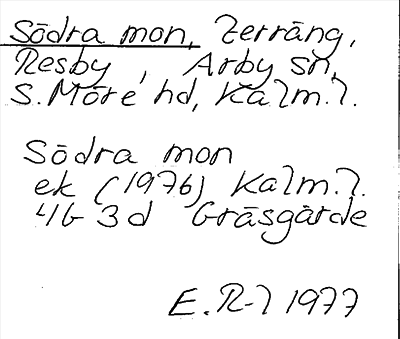 Södra mon, Terräng,
Resby, Arby sn,
S. Möre hd, Kalm. l.
Södra mon
ek (1976) Kalm. l.
4G 3d Gräsgärde
E. R-l 1977